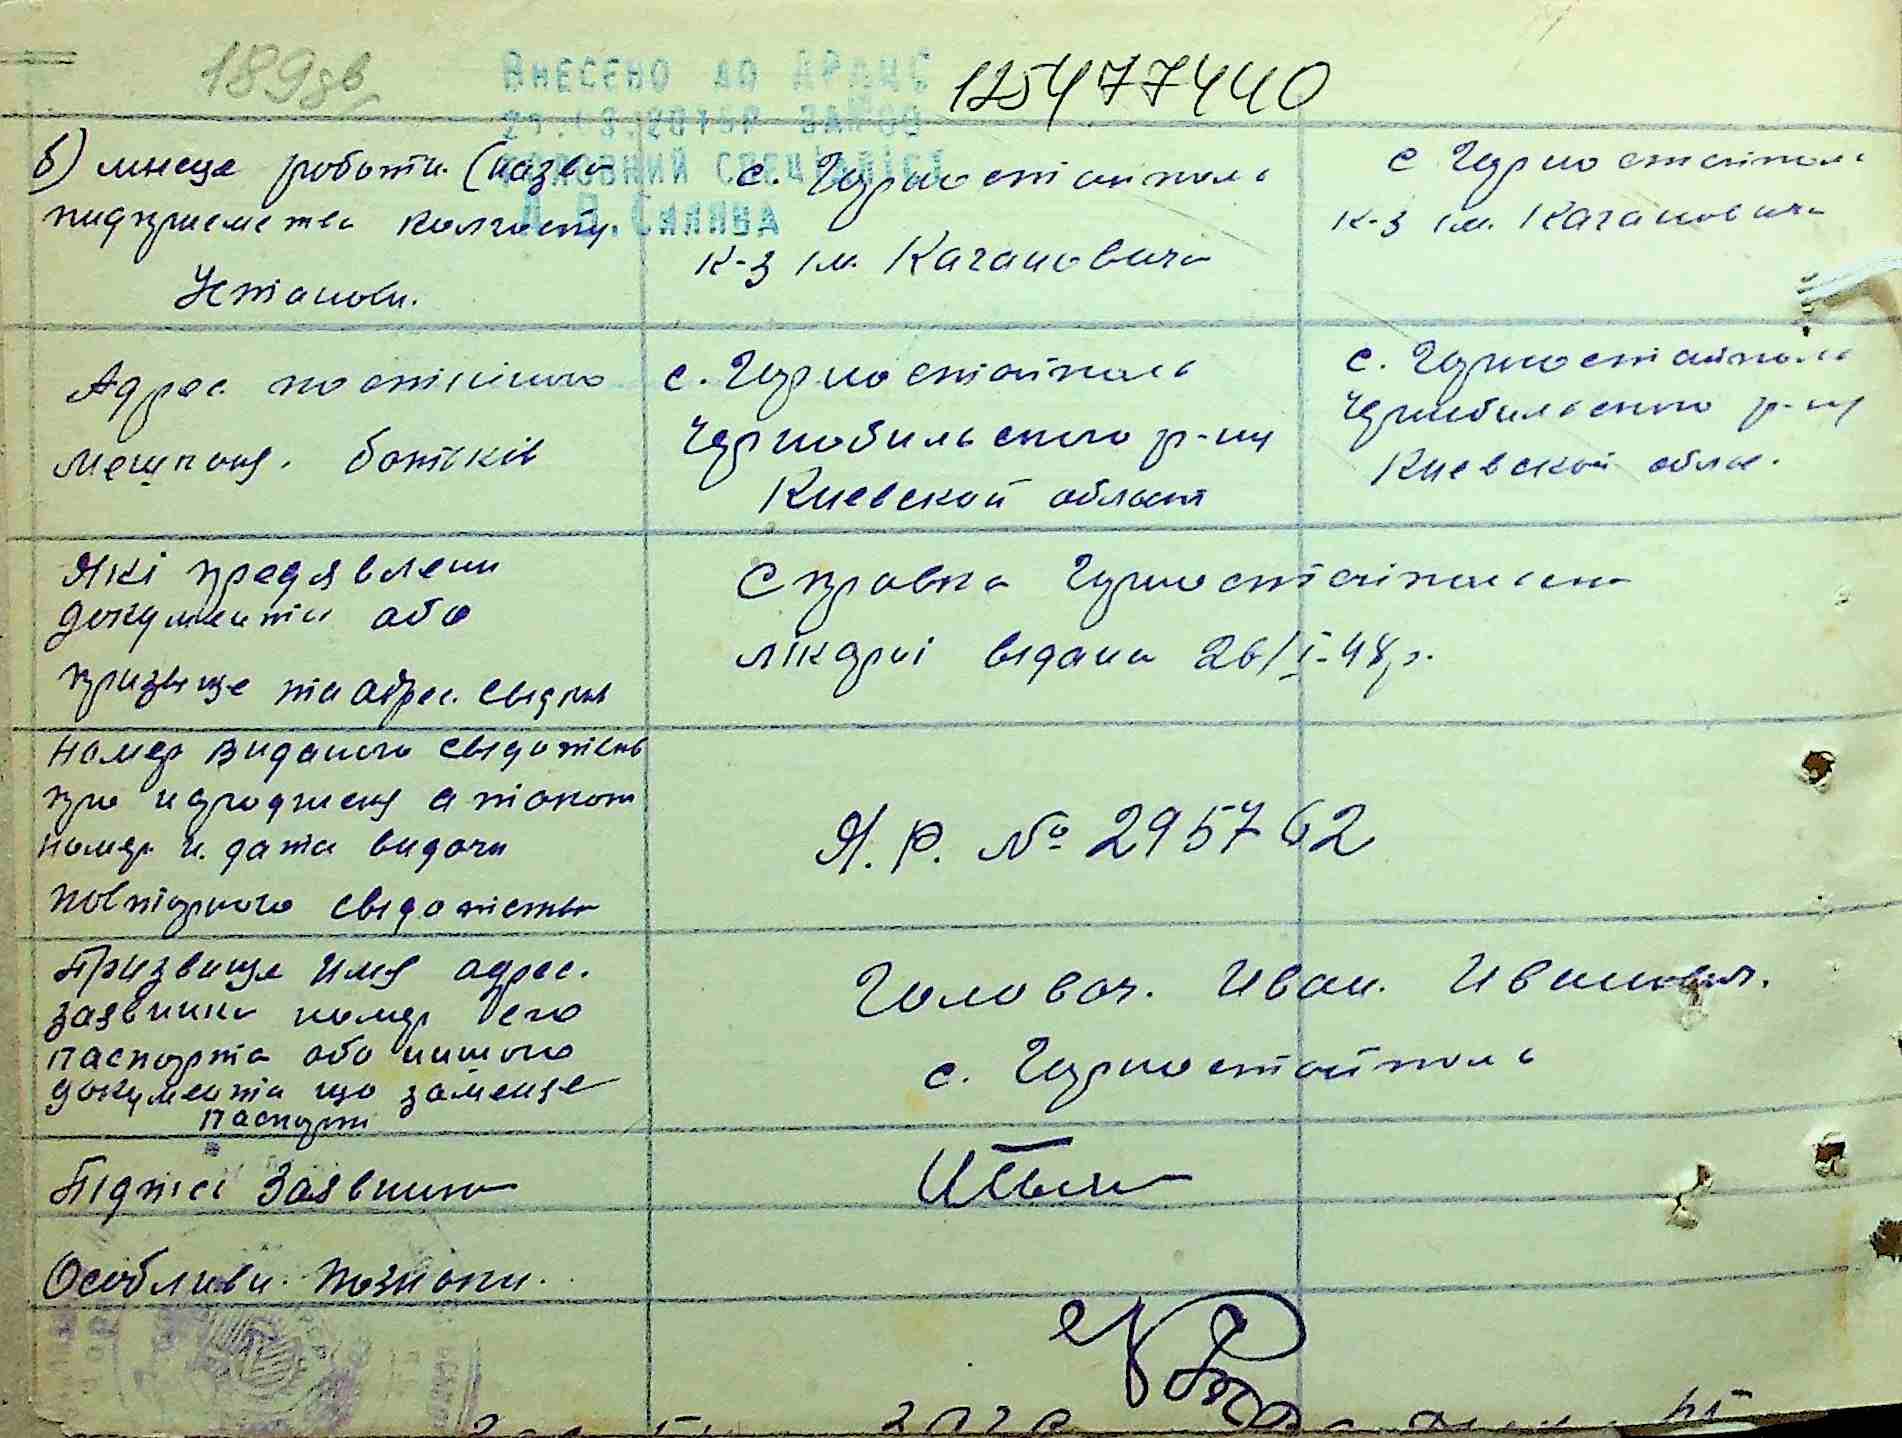 189зв
Внесено до
125477440
головний спеціаліст
б) мисце роботи. (назва
пидприемства колгоспу.
Установи.
с. Горностайполь
к-з ім. Кагановича
с Горностайполь
к-з ім. Кагановича
Адрес постійного
мешкан. батьків
с. Горностайполь
Чернобильского р-ну
Киевской област
с. Горностайполь
Чернобильского р-ну
Киевской облас.
Які предявлени
документи або
призвище та адрес. свідків
Справка Горностайпольська
лікарні видана 26/I-48р.
Номер виданого свідотства
про народження а також
номер и дата видачи
повторного свідотства
Я.Р. № 295762
Призвище Имя адрес.
заявника номер его
паспорта або иншого
документа що заменяе
паспорт
Головач. Иван. Иванович.
с. Горностайполь
Підписі Заявника
Особливи познаки.